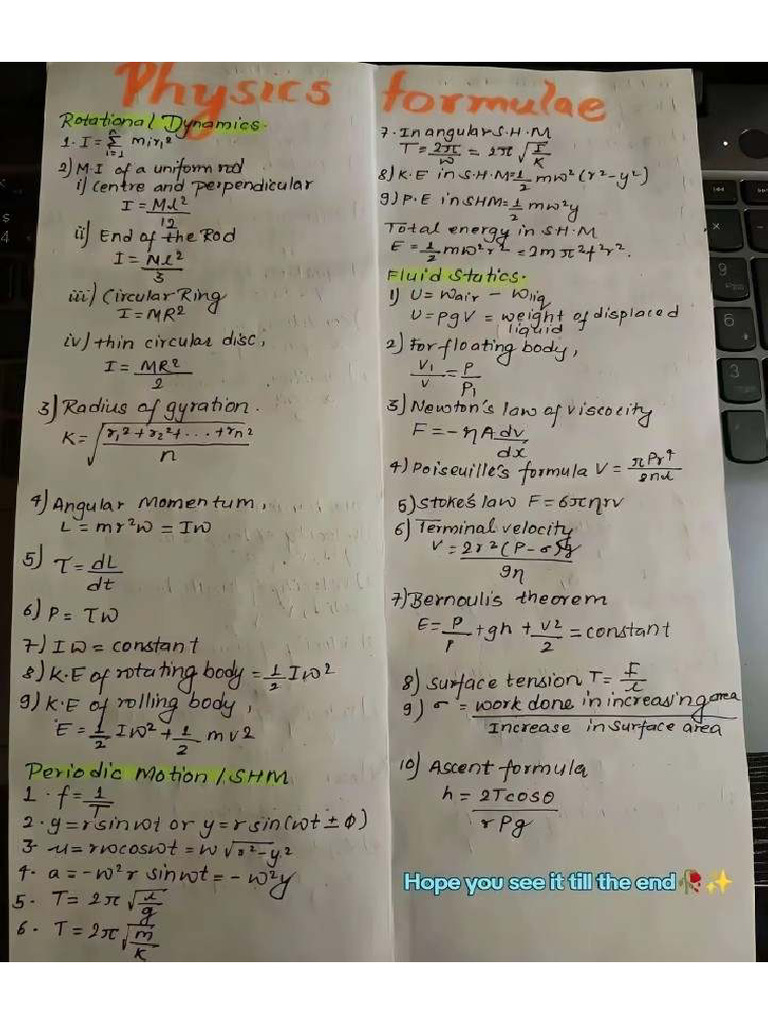 Physics formulae
Rotational Dynamics.
1. I = Σ mᵢrᵢ²
i=1
n
2) M.I of a uniform rod
i) Centre and perpendicular
I = Ml²/12
ii) End of the Rod
I = Ml²/3
iii) Circular Ring
I = MR²
iv) thin circular disc,
I = MR²/2
3) Radius of gyration.
K = √(r₁² + r₂² + ... + rn²/n)
4) Angular Momentum,
L = mr²ω = Iω
5) τ = dL/dt
6) P = τω
7) Iω = constant
8) K.E of rotating body = 1/2 Iω²
9) K.E of rolling body,
E = 1/2 Iω² + 1/2 mv2
Periodic Motion / SHM
1. f = 1/T
2. y = r sin ωt or y = r sin(ωt ± φ)
3. u = rω cos ωt = ω √r² - y²
4. a = -ω²r sin ωt = -ω²y
5. T = 2π √l/g
6. T = 2π √m/K
7. In angular S.H.M
T = 2π/ω = 2π √I/K
8) K.E in S.H.M = 1/2 mω² (r² - y²)
9) P.E in SHM = 1/2 mω²y
Total energy in S.H.M
E = 1/2 mω²r² = 2mπ²f²r².
Fluid Statics.
1) U = Wair - Wliq
U = ρgV = weight of displaced
liquid
2) For floating body,
V₁/V = ρ/ρ₁
3) Newton's law of viscocity
F = -ηA dv/dx
4) Poiseuille's formula V = πPr⁴/8ηl
5) Stoke's law F = 6πηrv
6) Terminal velocity
V = 2r²(ρ - σ)g/9η
7) Bernoulis theorem
E = P/ρ + gh + v2/2 = constant
8) Surface tension T = F/l
9) σ = work done in increasing area/
Increase in surface area
10) Ascent formula
h = 2Tcosθ/rρg
Hope you see it till the end🥀✨